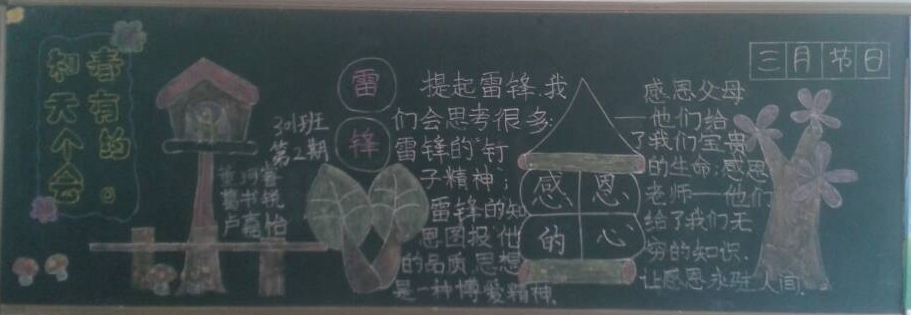 和春天有个约会。
301班
第2期
雷锋
提起雷锋,我
们会思考很多:
雷锋的"钉
子精神;
雷锋的知
恩图报,他
的品质、思想
是一种博爱精神.
感恩
的心
三月节日
感恩父母
——他们给
了我们宝贵
的生命;感恩
老师——他们
给了我们无
穷的知识.
让感恩永驻人间.